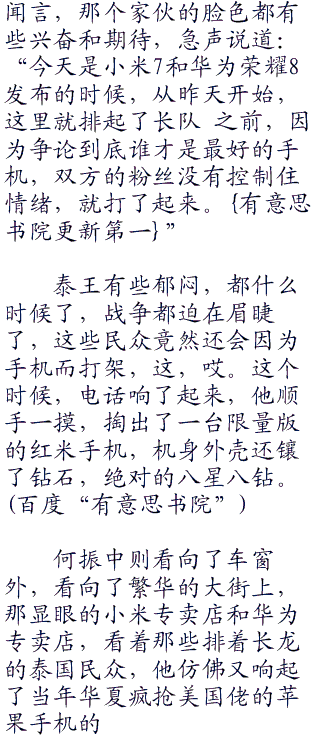 闻言，那个家伙的脸色都有
些兴奋和期待，急声说道：
“今天是小米7和华为荣耀8
发布的时候，从昨天开始，
这里就排起了长队 之前，因
为争论到底谁才是最好的手
机，双方的粉丝没有控制住
情绪，就打了起来。{有意思
书院更新第一}”
泰王有些郁闷，都什么
时候了，战争都迫在眉睫
了，这些民众竟然还会因为
手机而打架，这，哎。这个
时候，电话响了起来，他顺
手一摸，掏出了一台限量版
的红米手机，机身外壳还镶
了钻石，绝对的八星八钻。
(百度“有意思书院”)
何振中则看向了车窗
外，看向了繁华的大街上，
那显眼的小米专卖店和华为
专卖店，看着那些排着长龙
的泰国民众，他仿佛又响起
了当年华夏疯抢美国佬的苹
果手机的